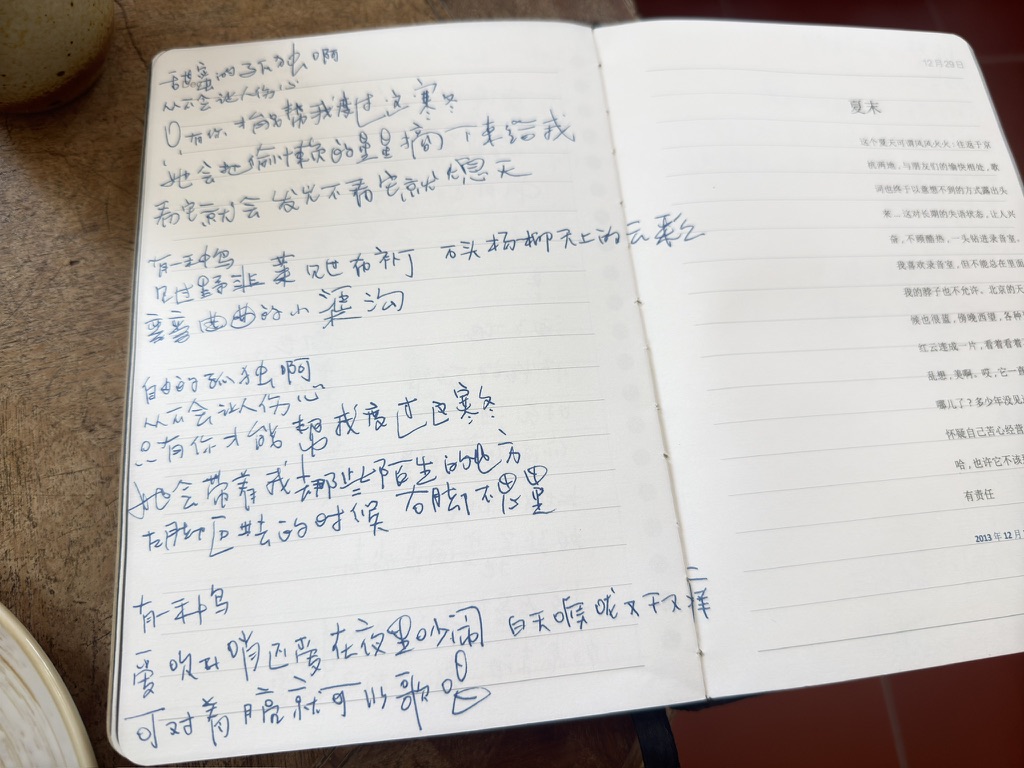 甜蜜的孤独啊
从不会让人伤心
只有你才能帮我度过这寒冬
她会把偷懒的星星摘下来给我
看它就会发光不看它就发愿天
有一种鸟
见过野韭菜见过布补丁 石头杨柳天上的云彩
弯弯曲曲的小渠沟
自由的孤独啊
从不会让人伤心
只有你才能帮我度过这寒冬
她会带着我去那些陌生的地方
左脚迈去的时候 右脚不累
有一种鸟
爱吹口哨还爱在夜里吵闹 白天喉咙又干又痒
可对着月亮就可以歌唱
12月29日
夏末
这个夏天可谓风风火火:往返于京
杭两地,与朋友们的愉快相处,歌
词也终于以意想不到的方式露出头
来…这对长期的失语状态,让人兴
奋,不顾酷热,一头钻进录音室。
我喜欢录音室,但不能总在里面
我的脖子也不允许。北京的天
候也很蓝,傍晚西望,各种
红云连成一片,看着看着
乱想,美啊。哎,它一直
哪儿了?多少年没见
怀疑自己苦心经营
哈,也许它不该
有责任
2013年12月